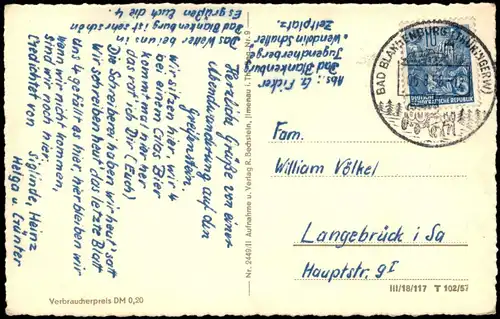 Das Wetter bei uns in
Bad Blankenburg ist sehr schön
Es grüßen Euch die 4.
Abs.: G. Ficker
Bad Blankenburg
Jugendherberge
"Wendelin Schaller"
Zeltplatz.
Herzliche Grüße von einer
Abendwanderung auf den
Greifenstein.
Wir sitzen hier, wir 4
bei einem Glas Bier
Kommt mal hier her
das rat' ich Dir (Euch)
Die Schreiberei haben wir heut' satt
Wir schreiben heut' das letzte Blatt
Uns 4 gefällt es hier, hier bleiben wir
wenn wir nicht kommen,
sind wir noch hier.
Gedichtet von Siglinde, Heinz
Helga u. Günter
Nr. 2449/II Aufnahme u. Verlag R. Bechstein, Ilmenau i. Th.
Verbraucherpreis DM 0,20
BAD BLANKENBURG (THÜRINGERW)
10
DEUTSCHE
DEMOKRATISCHE REPUBLIK
Fam.
William Völkel
Langebrück i Sa
Hauptstr. 9I
III/18/117 T 102/57